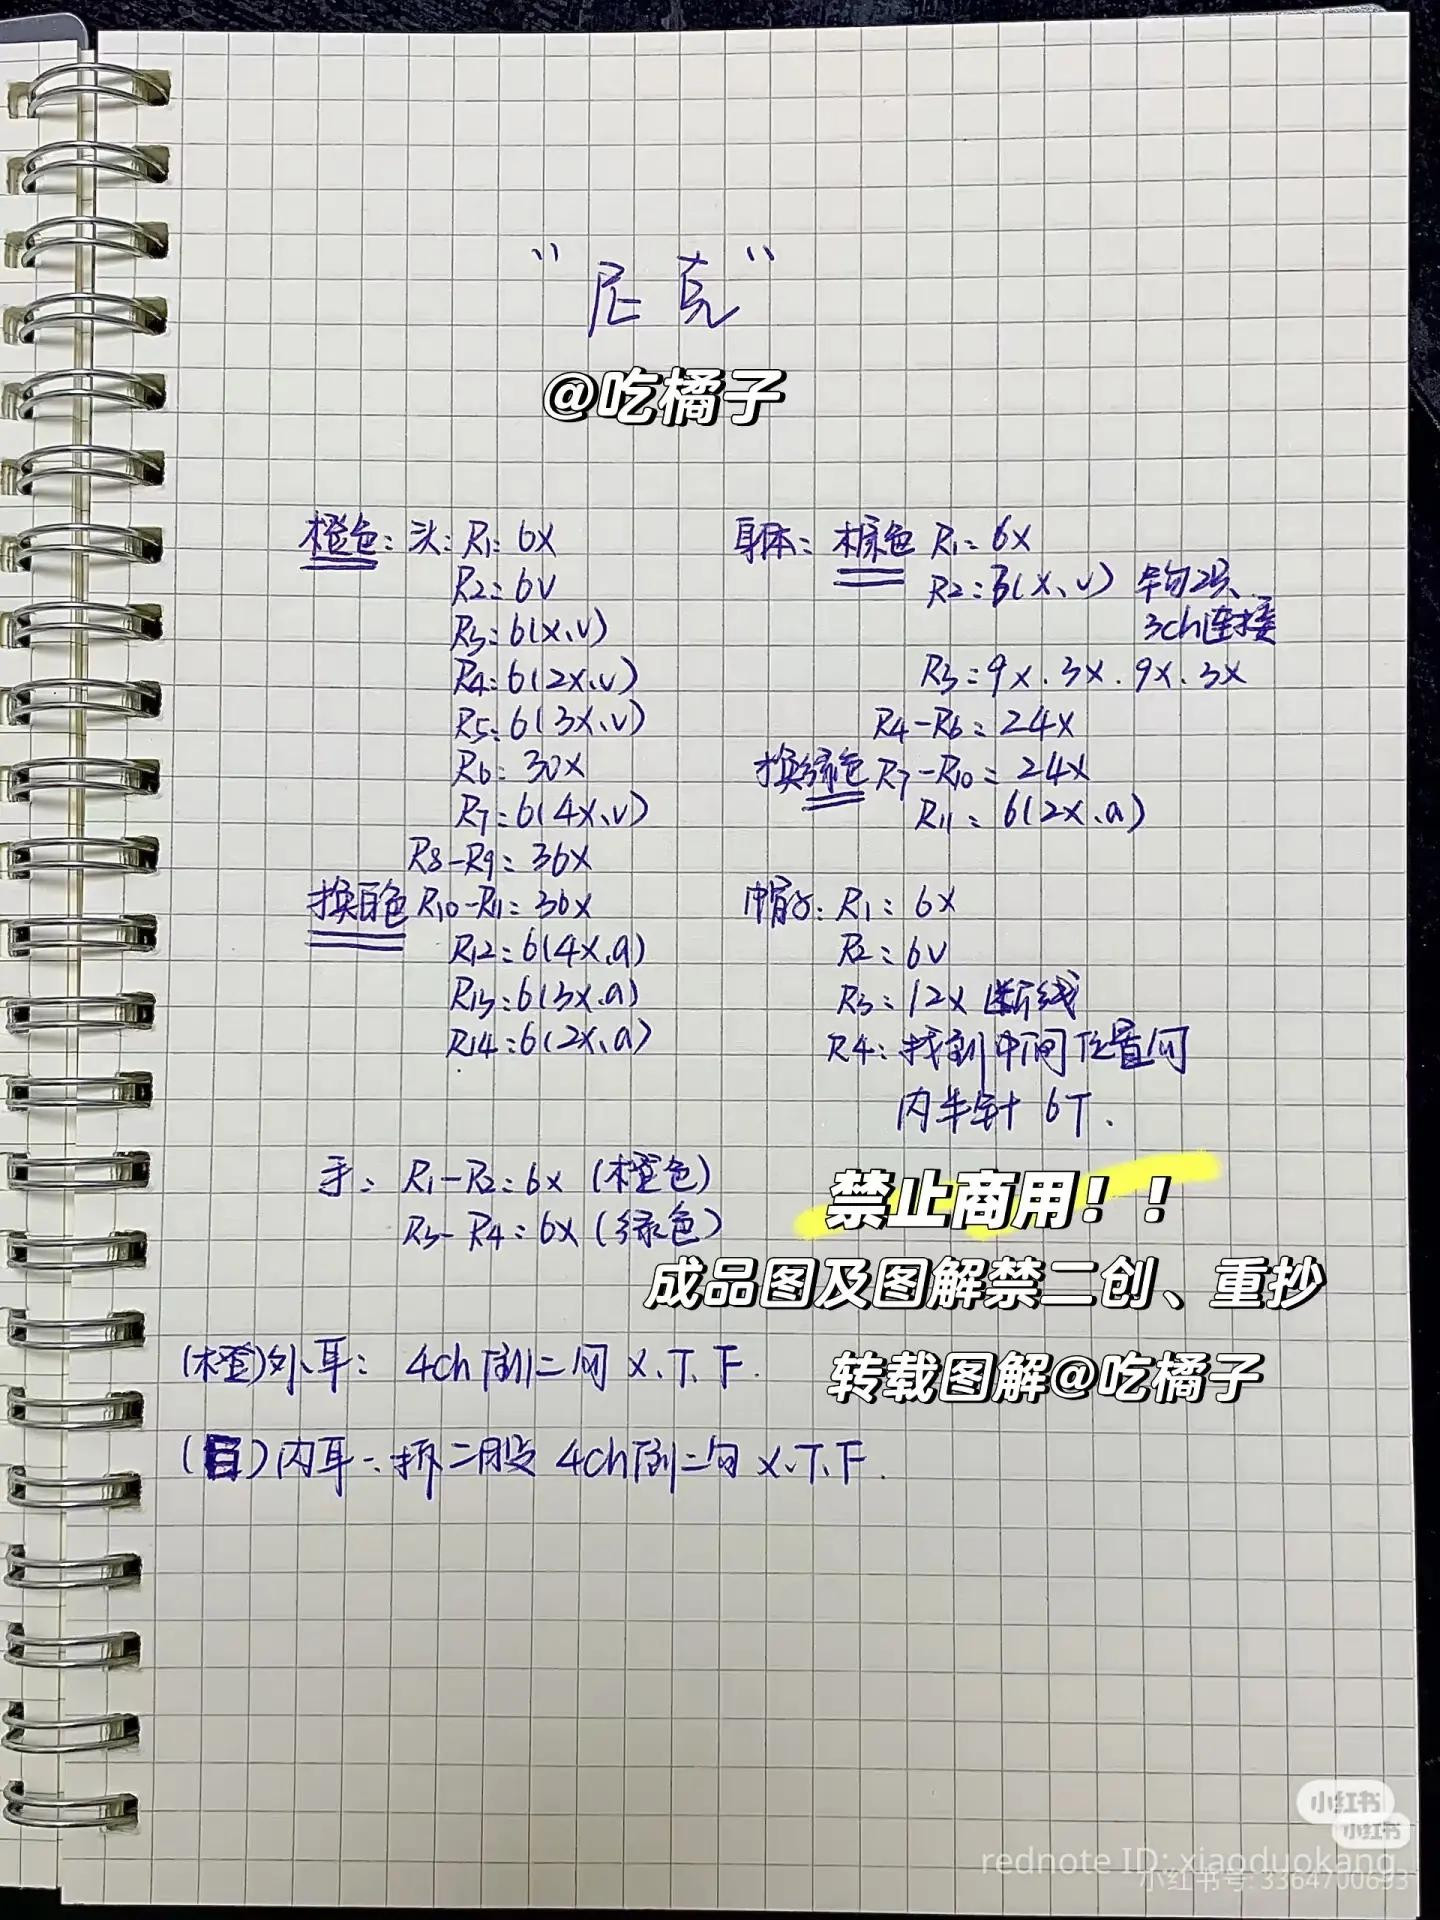 “尼克”
@吃橘子
橙色：头：R1：6X
R2：6V
R3：6(X、V)
R4：6(2X、V)
R5：6(3X、V)
R6：30X
R7：6(4X、V)
R8-R9：36X
换白色 R10-R11：36X
R12：6(4X、a)
R13：6(3X、a)
R14：6(2X、a)
身体：棕色 R1：6X
R2：3(X、V) 钩2只、
3ch连接
R3：9X.3X.9X.3X
R4-R6：24X
换绿色 R7-R10：24X
R11：6(2X、a)
帽子：R1：6X
R2：6V
R3：12X 断线
R4：找到中间位置向
内半针 6T.
手：R1-R2：6X (橙色)
R3-R4：6X (绿色)
禁止商用！！
成品图及图解禁二创、重抄
转载图解@吃橘子
(橙)外耳：4ch 倒二问 X.T.F.
内耳：拆二股 4ch倒二勾 X.T.F.
小红书
小红书
rednote ID: xiaoduokang
小红书号: 3364700693